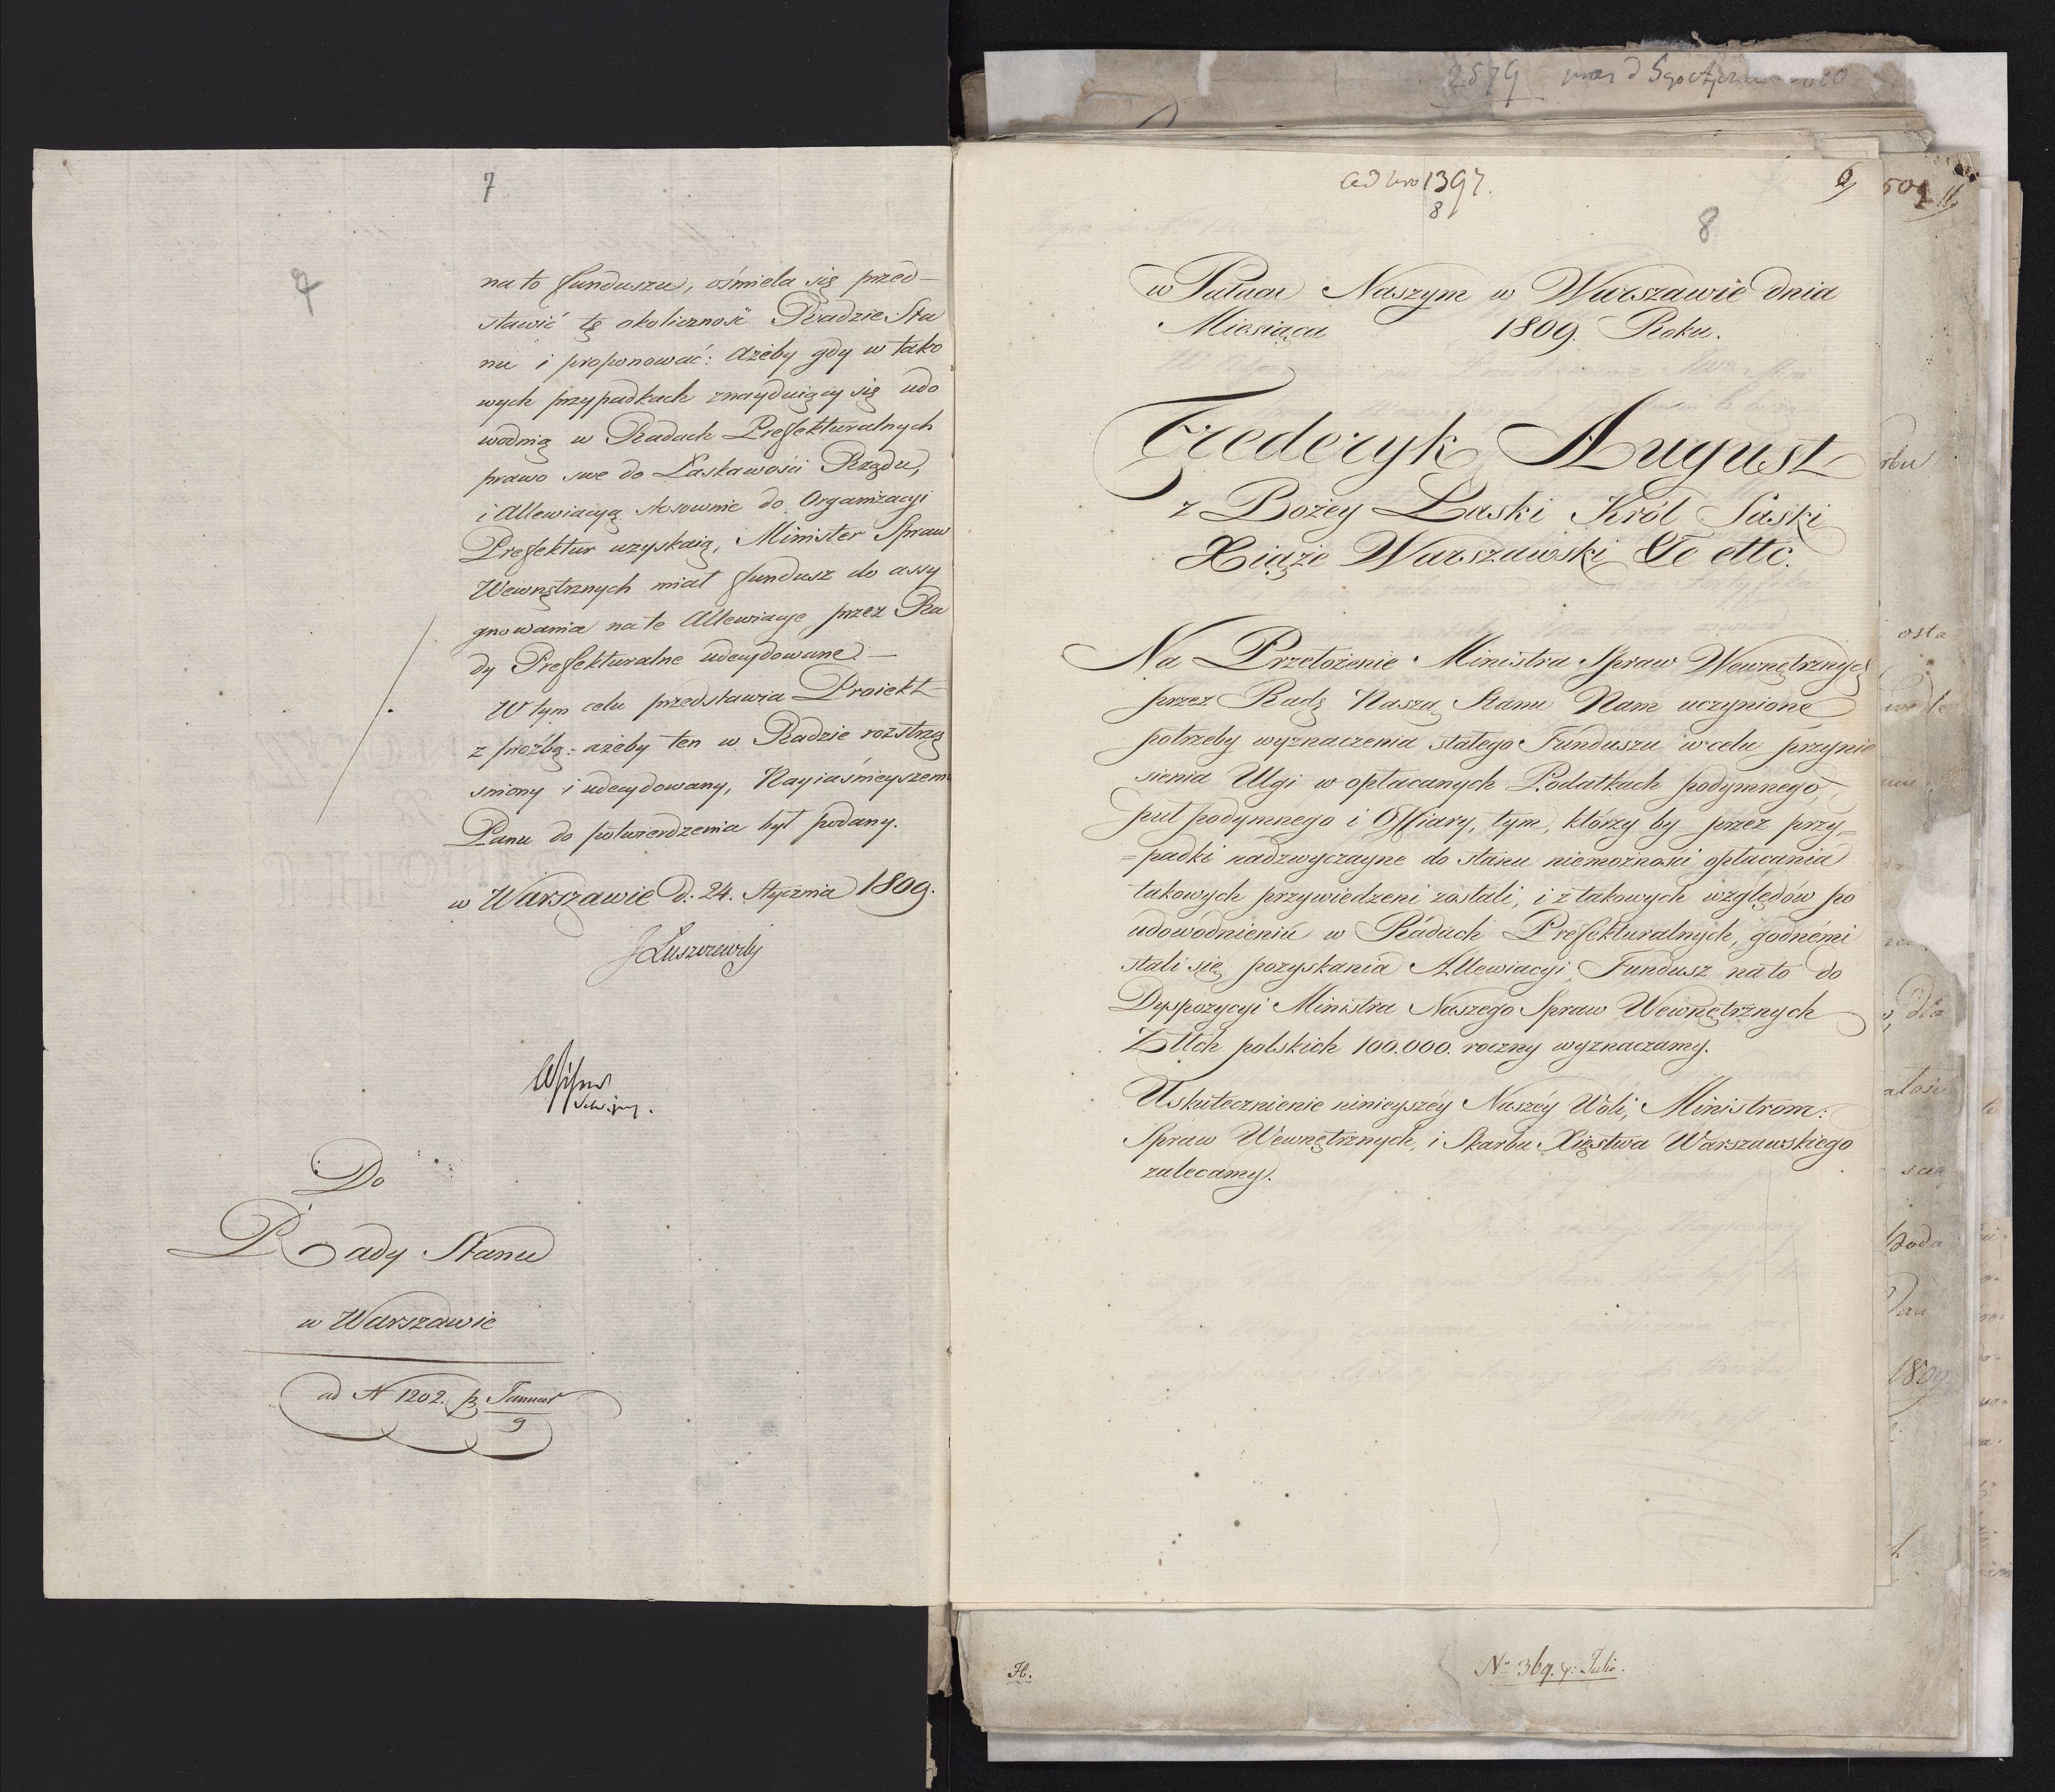 7
7
na to funduszu, ośmiela się przed-
stawić tę okoliczność Radzie Sta
nu i proponować: Ażeby gdy w tako
wych przypadkach znayduiący się udo
wodnią w Radach Prefekturalnych
prawo swe do Łaskawości Rządu,
i Allewiacyą stosownie do Organizacyi
Prefektur uzyskaią, Minister Spraw
Wewnętrznych miał fundusz do assy
gnowania na te Allewiacye przez Ra
dy Prefekturalne udecydowane. —
W tym celu przedstawia Proiekt
z proźbą: ażeby ten w Radzie rozstrzą
śniony i udecydowany, Nayiaśnieyszemu
Panu do potwierdzenia był podany.
w Warszawie d. 24. Stycznia 1809.
JŁuszczewski
Do
Rady Stanu
w Warszawie
ad N 1202. Januar
9
ad Nro 1397.
8
8
w Pałacu Naszym w Warszawie dnia
Miesiąca 1809. Roku.
Frederyk August
z Bożey Łaski Król Saski
Xiąże Warszawski &c ettc.
Na Przełożenie Ministra Spraw Wewnętrznych
przez Radę Naszą Stanu Nam uczynione
potrzeby wyznaczenia stałego Funduszu w celu przynie
sienia Ulgi w opłacanych Podatkach podymnego,
puł podymnego i Offiary, tym, którzy by przez przy=
=padki nadzwyczayne do stanu niemożności opłacania
takowych przywiedzeni zostali, i z takowych względów po
udowodnieniu w Radach Prefekturalnych, godnémi
stali się pozyskania Allewiacyi, Fundusz na to do
Dyspozycyi Ministra Naszego Spraw Wewnętrznych
Złtch polskich 100.000. roczny wyznaczamy.
Uskutecznienie ninieyszéy Naszéy Woli, Ministrom:
Spraw Wewnętrznych, i Skarbu Xięstwa Warszawskiego
zalecamy.
H.
No 369. Julio.